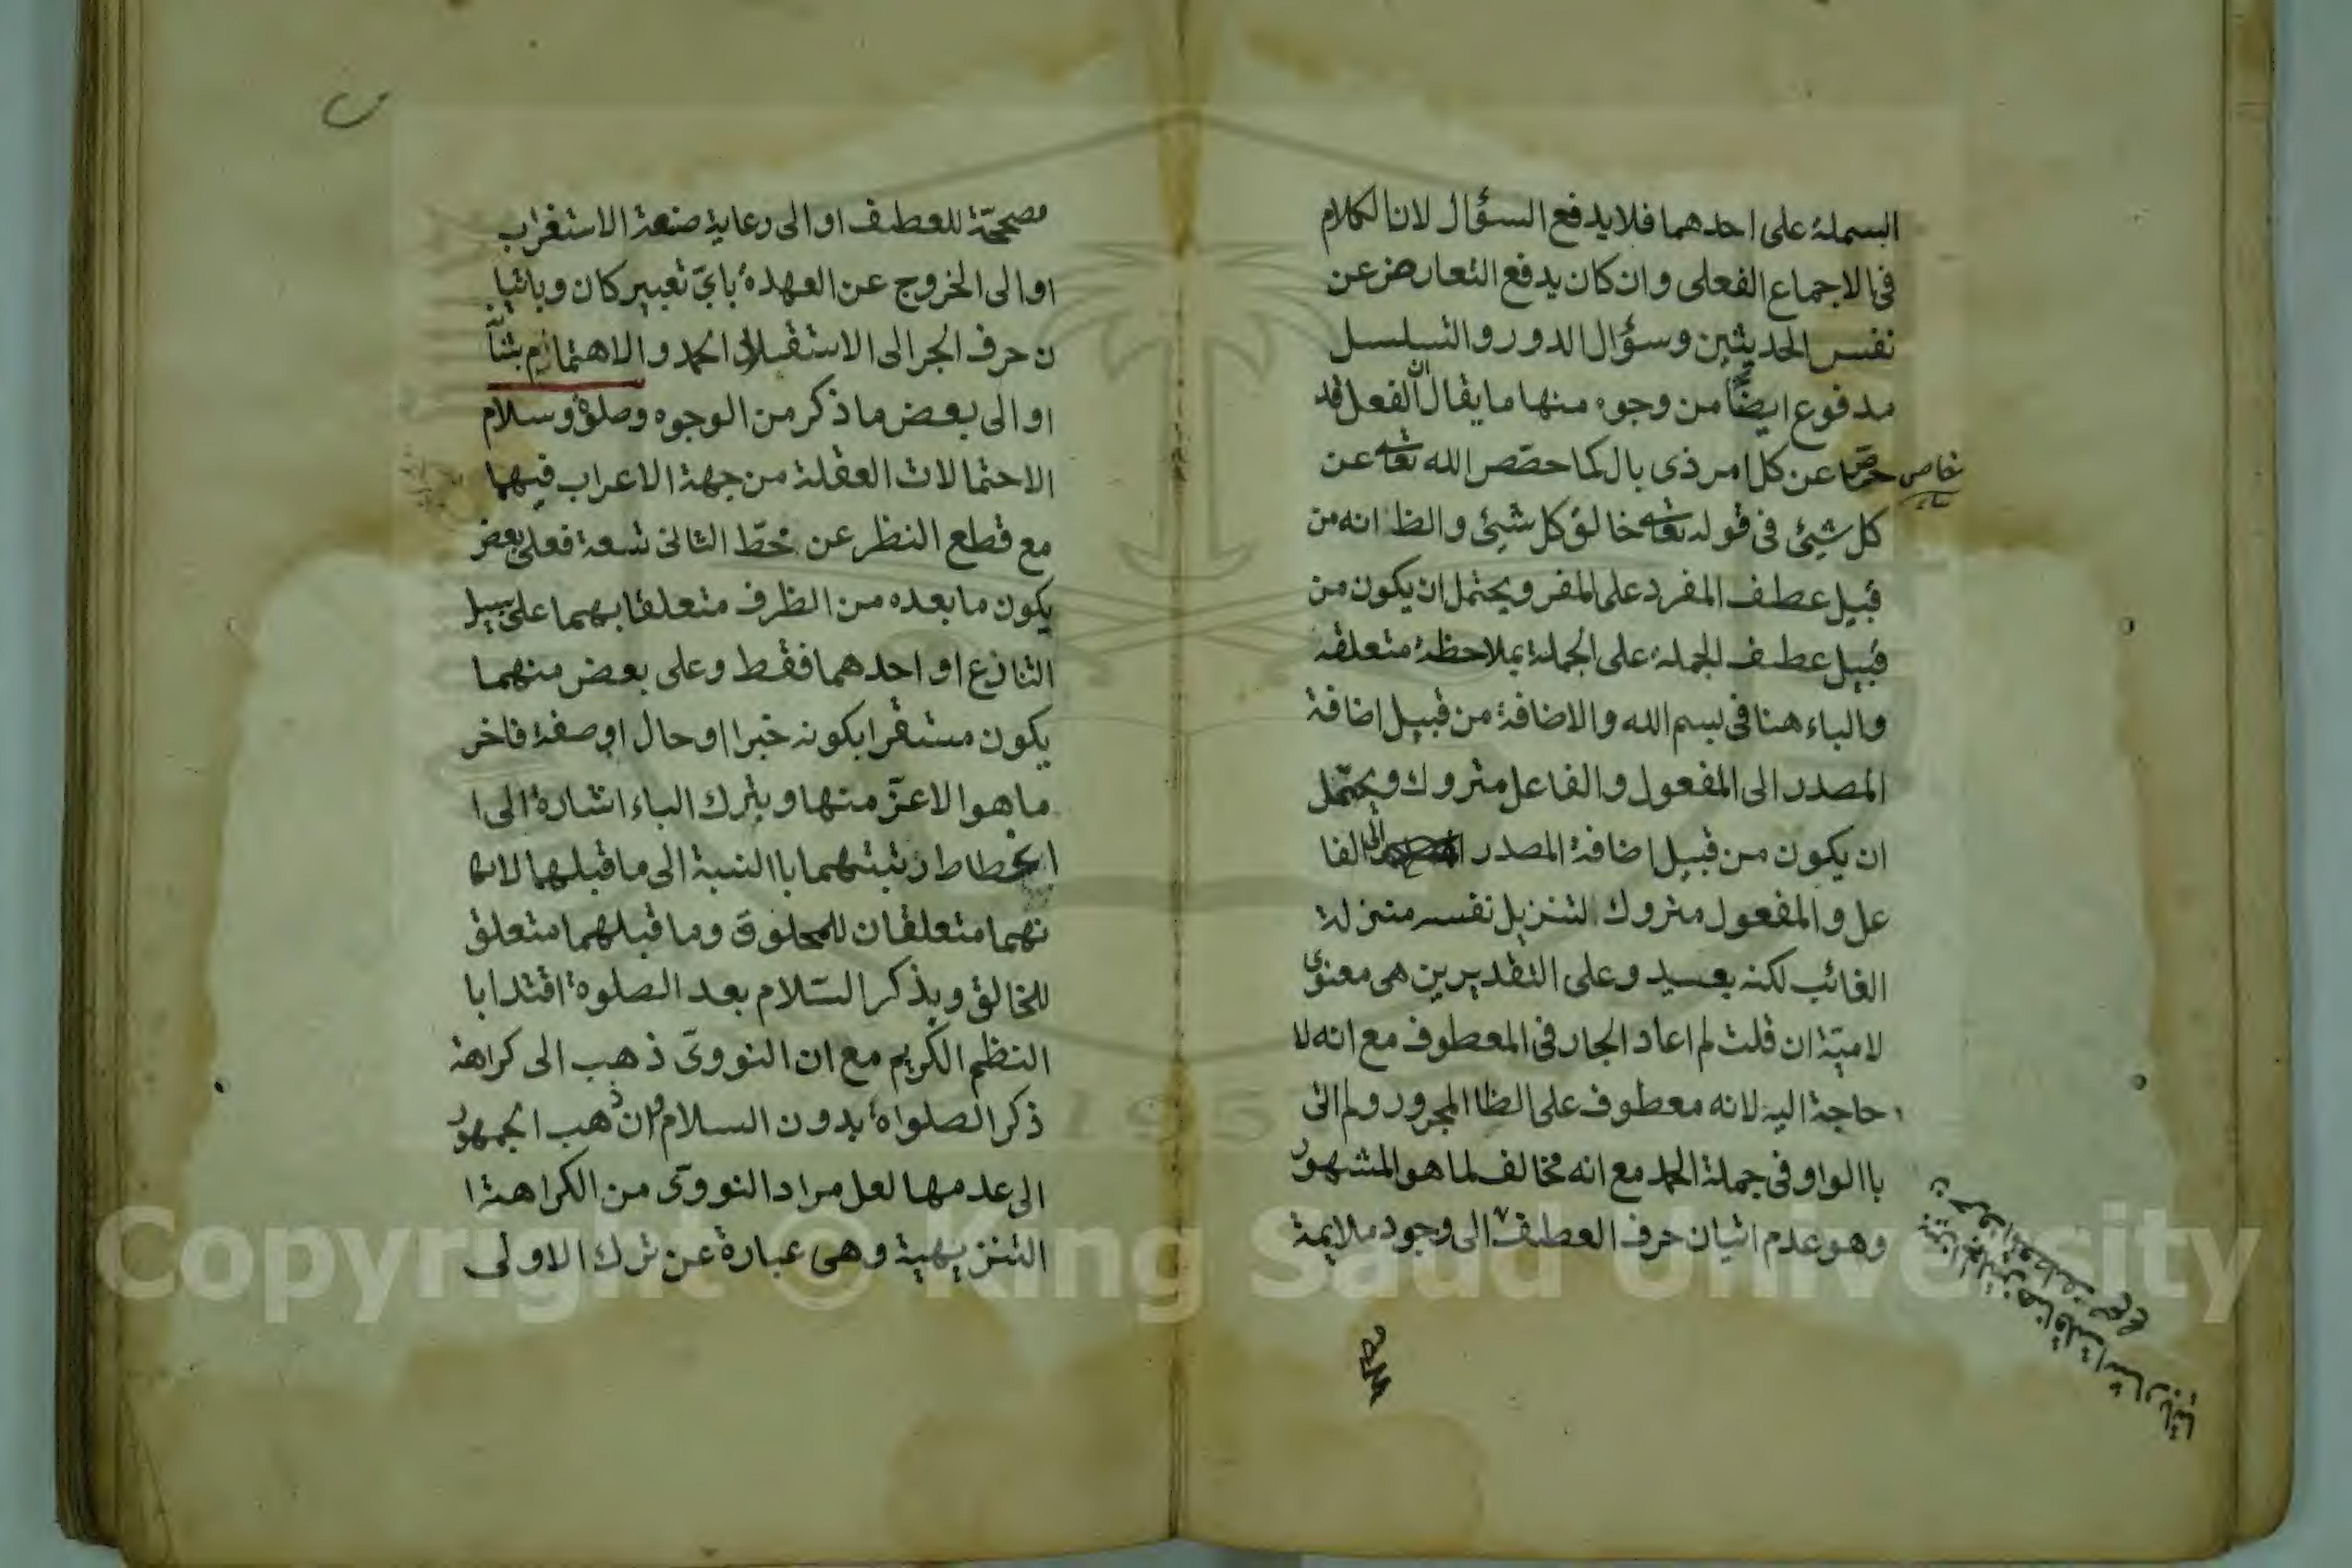 البسملة على احدهما فلا يدفع السؤال لان الكلام
فى الاجماع الفعلى وان كان يدفع التعارض عن
نفس الحديثين وسؤال الدور والتسلسل
مدفوع ايضًا من وجوه منها ما يقال ان الفعل قد
خصّ عن كل امر ذى بال كما خصّص الله تعالى عن
كل شيئ فى قوله تعالى خالق كل شيئ والظ انه من
قبيل عطف المفرد على المفر ويحتمل ان يكون من
قبيل عطف الجملة على الجملة بملاحظة متعلقه
والباء هنا فى بسم الله والاضافة من قبيل اضافة
المصدر الى المفعول والفاعل متروك ويحتمل
ان يكون من قبيل اضافة المصدر الى الفا
عل والمفعول متروك لتنزيل نفسه منزلة
الغائب لكنه بعيد وعلى التقديرين هى معنوى
لامية ان قلت لم اعاد الجار فى المعطوف مع انه لا
حاجة اليه لانه معطوف على الظا المجرور ولم اتى
با الواو فى جملة الحمد مع انه مخالف لما هو المشهور
وهو عدم اتيان حرف العطف الى وجود ملايمة
مصححّة للعطف او الى رعاية صنعة الاستغراب
او الى الخروج عن العهدة بايّ تعبير كان وباتيا
ن حرف الجر الى الاستقلال الحمد والاهتمام بشأنه
او الى بعض ما ذكر من الوجوه وصلوة وسلام
الاحتمالات العقلة من جهة الاعراب فيهما
مع قطع النظر عن محطّ الثانى تسعة فعلى بعض
يكون ما بعده من الظرف متعلقا بهما على سبيل
التنازع او احدهما فقط وعلى بعض منهما
يكون مستقرا بكونه خبرا او حال او صفة فاختر
ما هو الاعزّ منها وبترك الباء اشارة الى ا
انحطاط رتبتهما با النسبة الى ما قبلهما لا
نهما متعلقان للمخلوق وما قبلهما متعلق
للخالق وبذكر السّلام بعد الصلوة اقتدا با
النظم الكريم مع ان النووىّ ذهب الى كراهة
ذكر الصلواة بدون السلام وان ذهب الجمهور
الى عدمها لعل مراد النووىّ من الكراهة ا
التنزيهية وهى عبارة عن ترك الاولى
Copyright © King Saud University
195